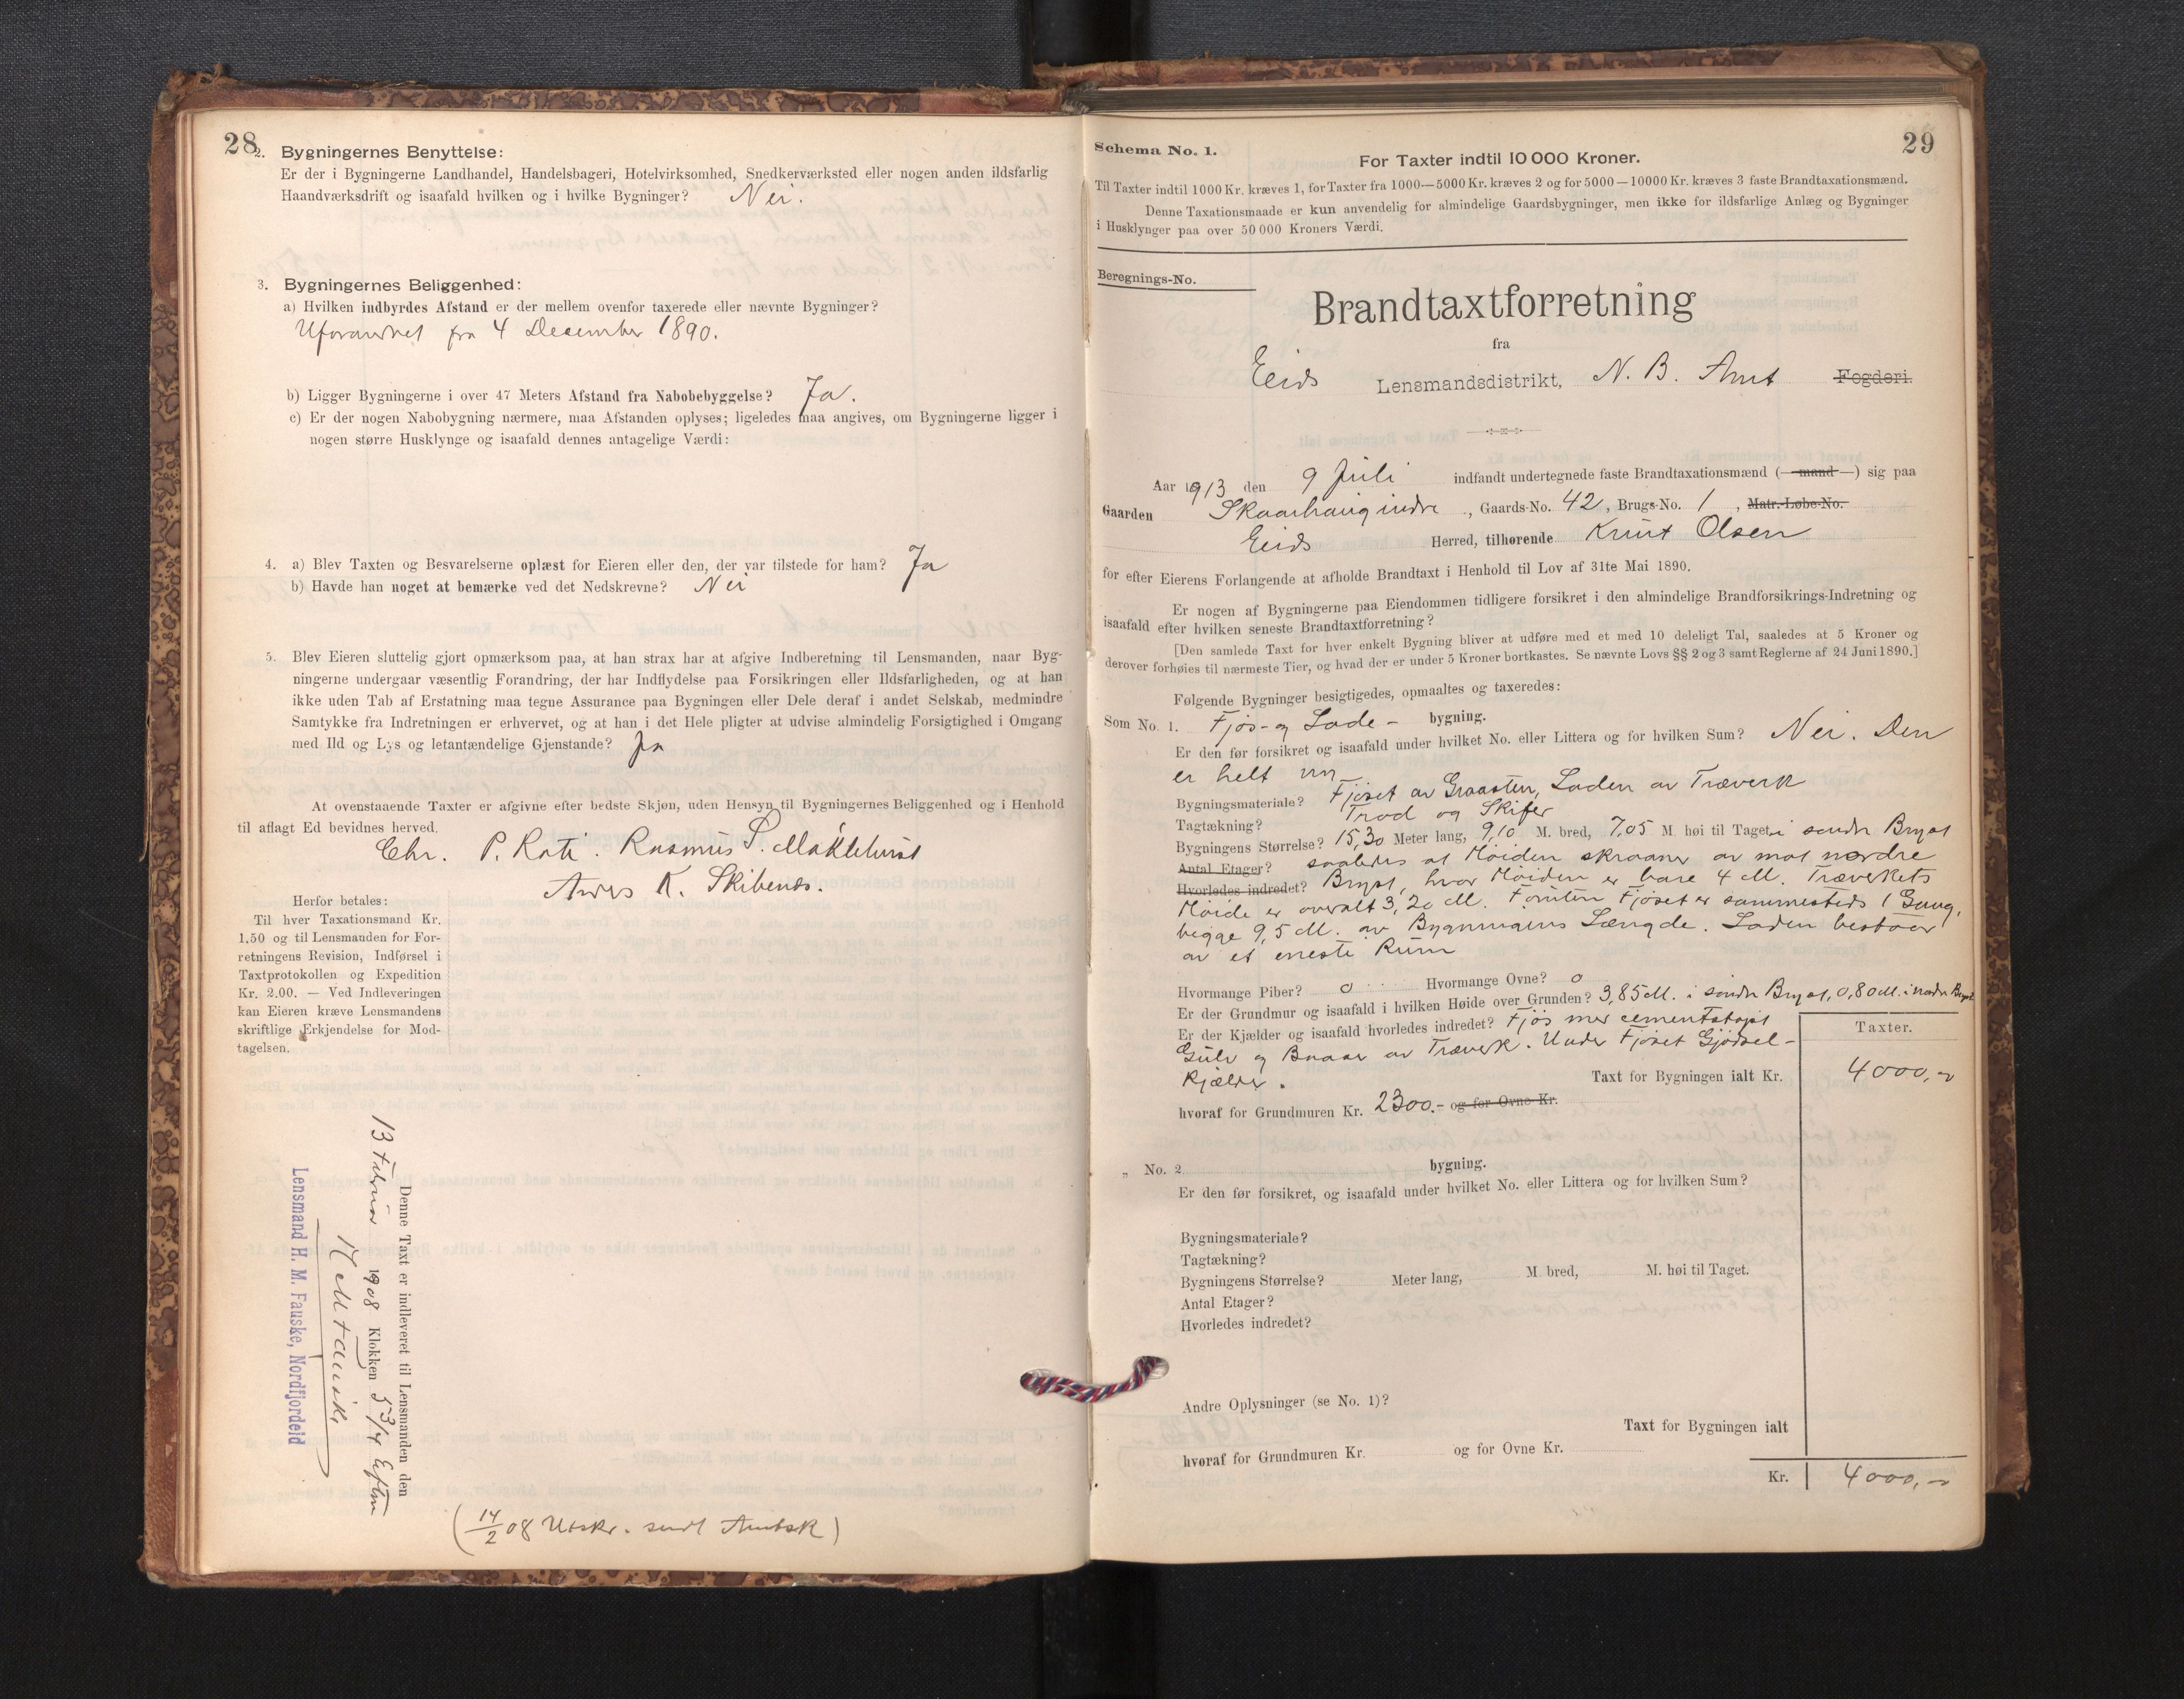 28
2. Bygningernes Benyttelse:
Er der i Bygningerne Landhandel, Handelsbageri, Hotelvirksomhed, Snedkerværksted eller nogen anden ildsfarlig
Haandværksdrift og isaafald hvilken og i hvilke Bygninger? Nei.
3. Bygningernes Beliggenhed:
a) Hvilken indbyrdes Afstand er der mellem ovenfor taxerede eller nævnte Bygninger?
Uforandret fra 4 December 1890.
b) Ligger Bygningerne i over 47 Meters Afstand fra Nabobebyggelse? Ja.
c) Er der nogen Nabobygning nærmere, maa Afstanden oplyses; ligeledes maa angives, om Bygningerne ligger i
nogen større Husklynge og isaafald dennes antagelige Værdi:
4. a) Blev Taxten og Besvarelserne oplæst for Eieren eller den, der var tilstede for ham? Ja
b) Havde han noget at bemærke ved det Nedskrevne? Nei
5. Blev Eieren sluttelig gjort opmærksom paa, at han strax har at afgive Indberetning til Lensmanden, naar Byg-
ningerne undergaar væsentlig Forandring, der har Indflydelse paa Forsikringen eller Ildsfarligheden, og at han
ikke uden Tab af Erstatning maa tegne Assurance paa Bygningen eller Dele deraf i andet Selskab, medmindre
Samtykke fra Indretningen er erhvervet, og at han i det Hele pligter at udvise almindelig Forsigtighed i Omgang
med Ild og Lys og letantændelige Gjenstande? Ja
At ovenstaaende Taxter er afgivne efter bedste Skjøn, uden Hensyn til Bygningernes Beliggenhed og i Henhold
til aflagt Ed bevidnes herved.
Chr. P. Rasmus S.
K.
Herfor betales:
Til hver Taxationsmand Kr.
1.50 og til Lensmanden for For-
retningens Revision, Indførsel i
Taxtprotokollen og Expedition
Kr. 2.00. — Ved Indleveringen
kan Eieren kræve Lensmandens
skriftlige Erkjendelse for Mod-
tagelsen.
Denne Taxt er indleveret til Lensmanden den
13 Februar 1908 Klokken 5 3/4 Efterm
H M Fauske
Lensmand H. M. Fauske, Nordfjordeid
(14/2 08 Utskr. sendt Amtsk)
29
Schema No. 1.
For Taxter indtil 10 000 Kroner.
Til Taxter indtil 1000 Kr. kræves 1, for Taxter fra 1000—5000 Kr. kræves 2 og for 5000—10000 Kr. kræves 3 faste Brandtaxationsmænd.
Denne Taxationsmaade er kun anvendelig for almindelige Gaardsbygninger, men ikke for ildsfarlige Anlæg og Bygninger
i Husklynger paa over 50 000 Kroners Værdi.
Beregnings-No.
Brandtaxtforretning
fra
Eids Lensmandsdistrikt, N. B. Amt Fogderi.
Aar 1913 den 9 Juli indfandt undertegnede faste Brandtaxationsmænd (— mand —) sig paa
Gaarden Skaarhaug indre, Gaards-No. 42, Brugs-No. 1, Matr.-Løbe-No.
Eids Herred, tilhørende Knut Olsen
for efter Eierens Forlangende at afholde Brandtaxt i Henhold til Lov af 31te Mai 1890.
Er nogen af Bygningerne paa Eiendommen tidligere forsikret i den almindelige Brandforsikrings-Indretning og
isaafald efter hvilken seneste Brandtaxtforretning?
[Den samlede Taxt for hver enkelt Bygning bliver at udføre med et med 10 deleligt Tal, saaledes at 5 Kroner og
derover forhøies til nærmeste Tier, og hvad der er under 5 Kroner bortkastes. Se nævnte Lovs §§ 2 og 3 samt Reglerne af 24 Juni 1890.]
Følgende Bygninger besigtigedes, opmaaltes og taxeredes:
Som No. 1. Fjøs- og Lade- bygning.
Er den før forsikret og isaafald under hvilket No. eller Littera og for hvilken Sum? Nei. Den
er helt ny
Bygningsmateriale? Fjøset av Graasten, Laden av Træverk
Tagtækning? Trod og Skifer
Bygningens Størrelse? 15,30 Meter lang, 9,10 M. bred, 7,05 M. høi til Taget. i søndre Bryst
Antal Etager? saaledes at Høiden skraaner av mot nordre
Hvorledes indredet? Bryst, hvor Høiden er bare 4 M. Træverkets
Høide er overalt 3,20 M. Foruten Fjøset er sammesteds 1 Gang,
begge 9,5 M. av Bygningens Længde. Laden bestaar
av et eneste Rum
Hvormange Piber? 0 Hvormange Ovne? 0
Er der Grundmur og isaafald i hvilken Høide over Grunden? 3,85 M. i søndre Bryst, 0,80 M. i nordre Bryst
Er der Kjælder og isaafald hvorledes indredet? Fjøs med cementstøpt
Gulv og Baaser av Træverk. Under Fjøset Gjødsel-
kjælder.
Taxter.
Taxt for Bygningen ialt Kr. 4000,-
hvoraf for Grundmuren Kr. 2300.- og for Ovne Kr.
„ No. 2 bygning.
Er den før forsikret, og isaafald under hvilket No. eller Littera og for hvilken Sum?
Bygningsmateriale?
Tagtækning?
Bygningens Størrelse? Meter lang, M. bred, M. høi til Taget.
Antal Etager?
Hvorledes indredet?
Andre Oplysninger (se No. 1)?
Taxt for Bygningen ialt
hvoraf for Grundmuren Kr. og for Ovne Kr.
Kr. 4000,-